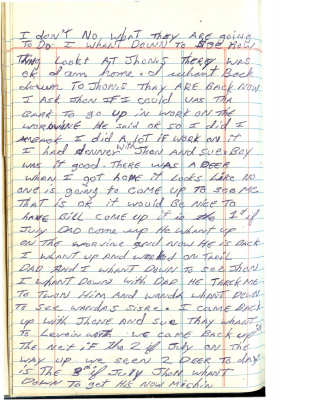 I don't No. what They ARE going
To Do I WHANT DOWN TO See How
Thing Lookt AT Jhonis They WAS
ok I am home. I whant Back
down TO JHONIS THAY ARE BACK NOW
I ASK Jhon IF I could use THA
TO go up in WORK ON THE
He said ok so I did I
I did A Lot IF WORK on IT
I had dinner with Jhon And Sue. Boy
WAS IT good. THERE WAS A DEER
WHAN I got home IT Looks Like NO
one is going to come up To see ME
THAT is ok IT would BE NICE TO
have Bill come up IT is the 1st if
July DAD come up HE whant up
ON THE and NOW HE is BACK
I WHANT up And worked on TRAIL
DAD And I WHANT Down To see Jhon
I WHANT Down with DAD HE
TO Town Him And WANDA WHANT DOWN
To see wandas I came BACK
up with JHONE And Sue THAY WHANT
To we came BACK up
THE IF THE 2 if July on THE
WAY up we seen 2 DEER To day
is THE if July Jhon WHANT
Down To get His Now Mishin